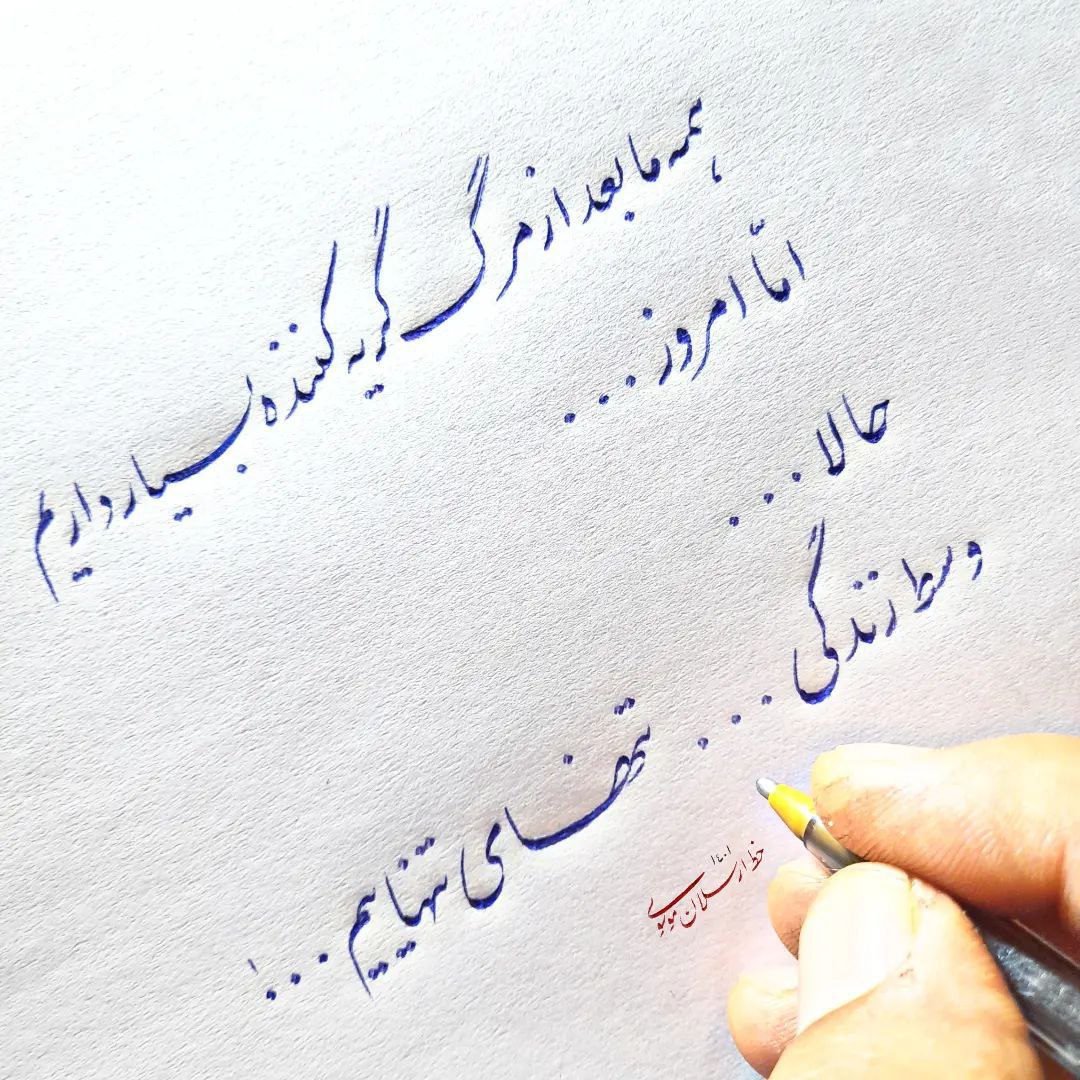 همه ما بعد از مرگ گریه کننده بسیار داریم
امّا امروز...
حالا...
وسط زندگی...
تنهای تنهاییم...!
خط ارسلان موسوی
۱٤۰۱